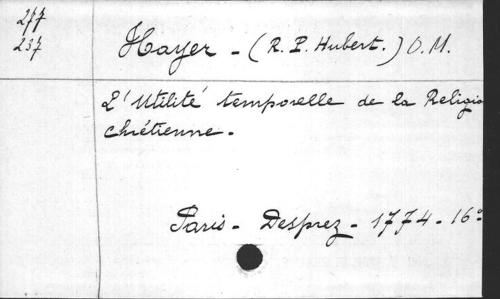 277
237
Hayer - (R. P. Hubert.) O. M.
L'Utilité temporelle de la Religio
chrétienne.
Paris - Desprez - 1774 - 16º